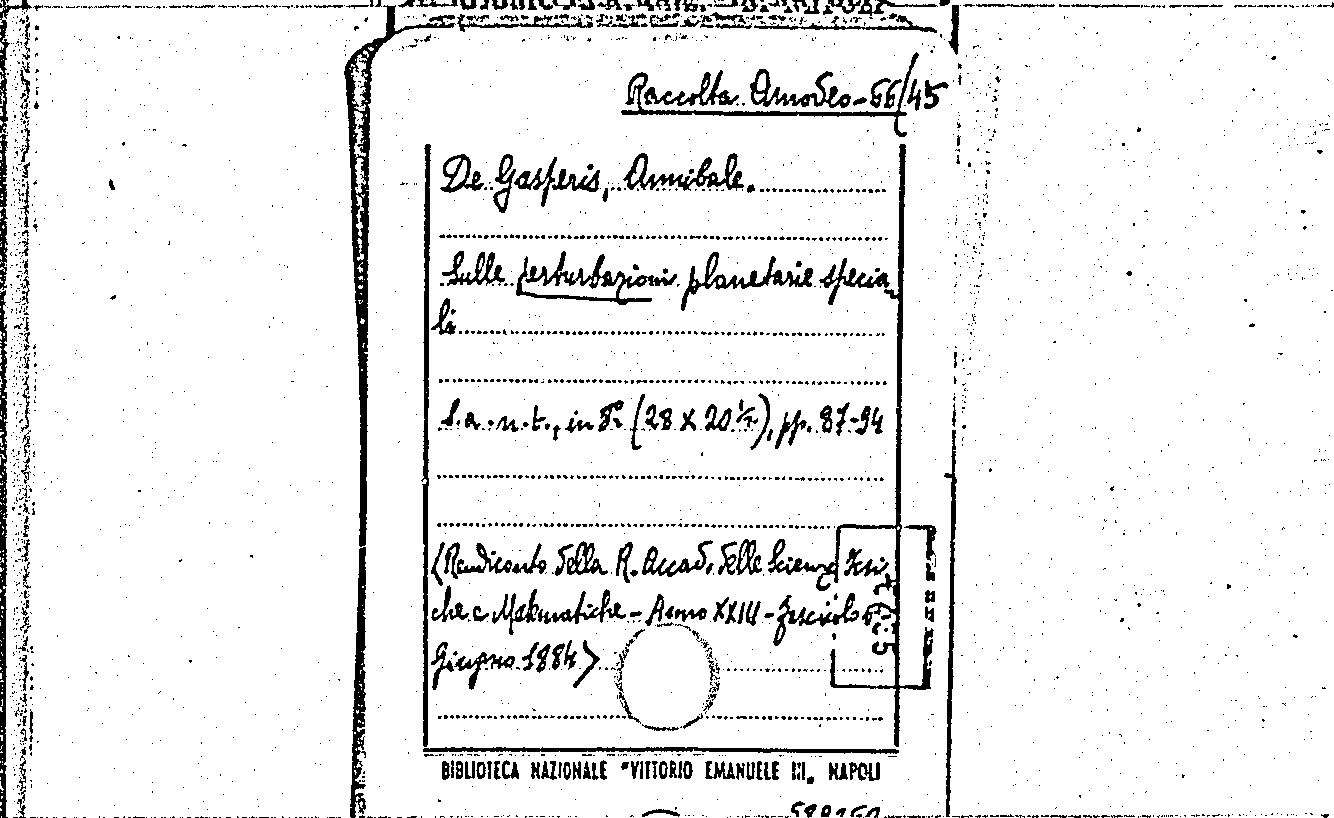 Raccolta Amodeo - 66/45
De Gasperis, Annibale.
Sulle perturbazioni planetarie specia-
li
S.a.n.t., in 8° (28 x 20 ½), pp. 87-94
(Rendiconto della R. Accad. delle Scienze Fisi-
che e Matematiche - Anno XXIII - Fascicolo 6°
Giugno 1884)
BIBLIOTECA NAZIONALE "VITTORIO EMANUELE III„ NAPOLI